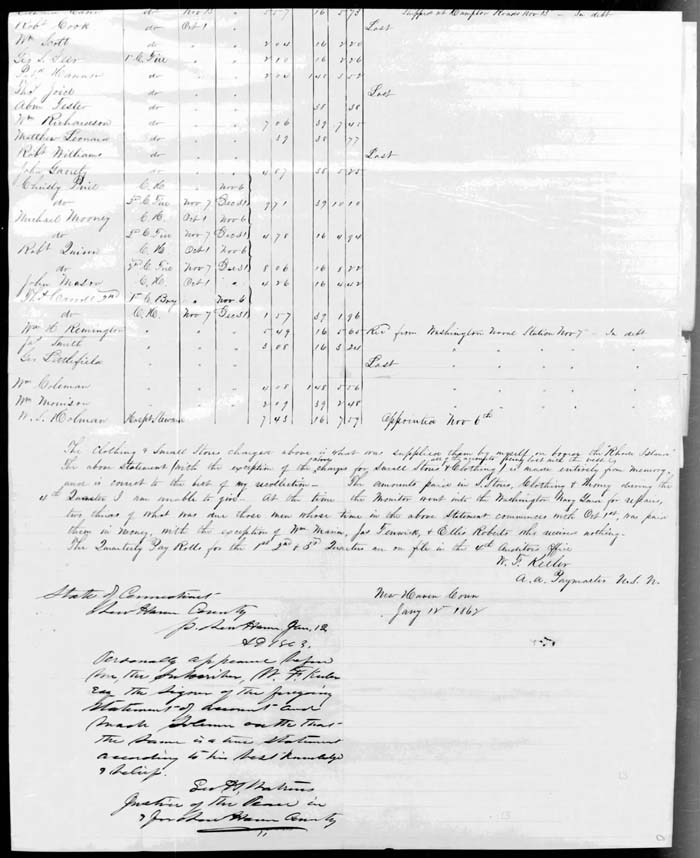 do Nov 13 " 5 57 16 5 73 Shipped at Hampton Roads Nov 13 - In debt
Robt Cook do Oct 1 " Lost
Wm Scott do " " 2 04 16 2 20
Geo S. Geer 1st C. Fire " " 2 10 16 2 26
Hannan do " " 2 04 1 48 3 52
Thos Joice do " " Lost
Abm Fester do " " 38 38
Wm Richardson do " " 7 06 39 7 45
Matthew Leonard do " " 39 38 77
Robt Williams do " " Lost
John Garrety do " " 4 87 38 5 25
Christy Price C. H. " Nov 6
do 2d C. Fire Nov 7 Dec 31 9 71 39 10 10
Michael Mooney C. H. Oct 1 Nov 6
do 2d C. Fire Nov 7 Dec 31 4 78 16 4 94
Robt Quinn C. H. Oct 1 Nov 6
do 2d C. Fire Nov 7 Dec 31 8 06 16 8 22
John Mason C. H. Oct 1 " 4 26 16 4 42
Thos Carroll 2nd 1st C Boy " Nov 6
do C. H. Nov 7 Dec 31 1 57 39 1 96
Wm H. Remington " " " 5 49 16 5 65 Recd from Washington Naval Station Nov 7 - In debt
Jas Smith " " " 3 08 16 3 24 " " " " "
Geo Littlefield " " " Lost " " " "
Wm Coleman " " " 4 08 1 48 5 56 " " " "
Wm Morrison " " " 2 09 39 2 48 " " " "
W. S. Holman Hospt Steward " " 7 43 16 7 59 Appointed Nov 6th
The Clothing & Small Stores charged above is what was supplied them by myself on board the "Rhode Island"
all of the accounts being lost with the vessel
The above statement (with the exception of the above charges for Small Stores & Clothing) is made entirely from memory
and is correct to the best of my recollection - The amounts paid in S. Stores, Clothing & Money during the
4th Quarter I am unable to give. At the time the Monitor went into the Washington Navy Yard for repairs,
two thirds of what was due those men whose time in the above statement commences with Oct 1st, was paid
them in money, with the exception of Wm Marion, Jas Fenwick, & Ellis Roberts who received nothing.
The Quarterly Pay Rolls for the 1st 2nd & 3d Quarters are on file in the 4th Auditors Office
W. F. Keeler
A. A. Paymaster U. S. N.
New Haven Conn
Jany 12 1862
State of Connecticut
New Haven County
New Haven Jan. 12
AD 1863.
Personally appeared before
me, the subscriber, W. F. Keeler
Esq the signer of the foregoing
statement of account and
made solemn oath that
the same is a true statement
according to his best knowledge
& belief.
Justice of the Peace in
& for New Haven County